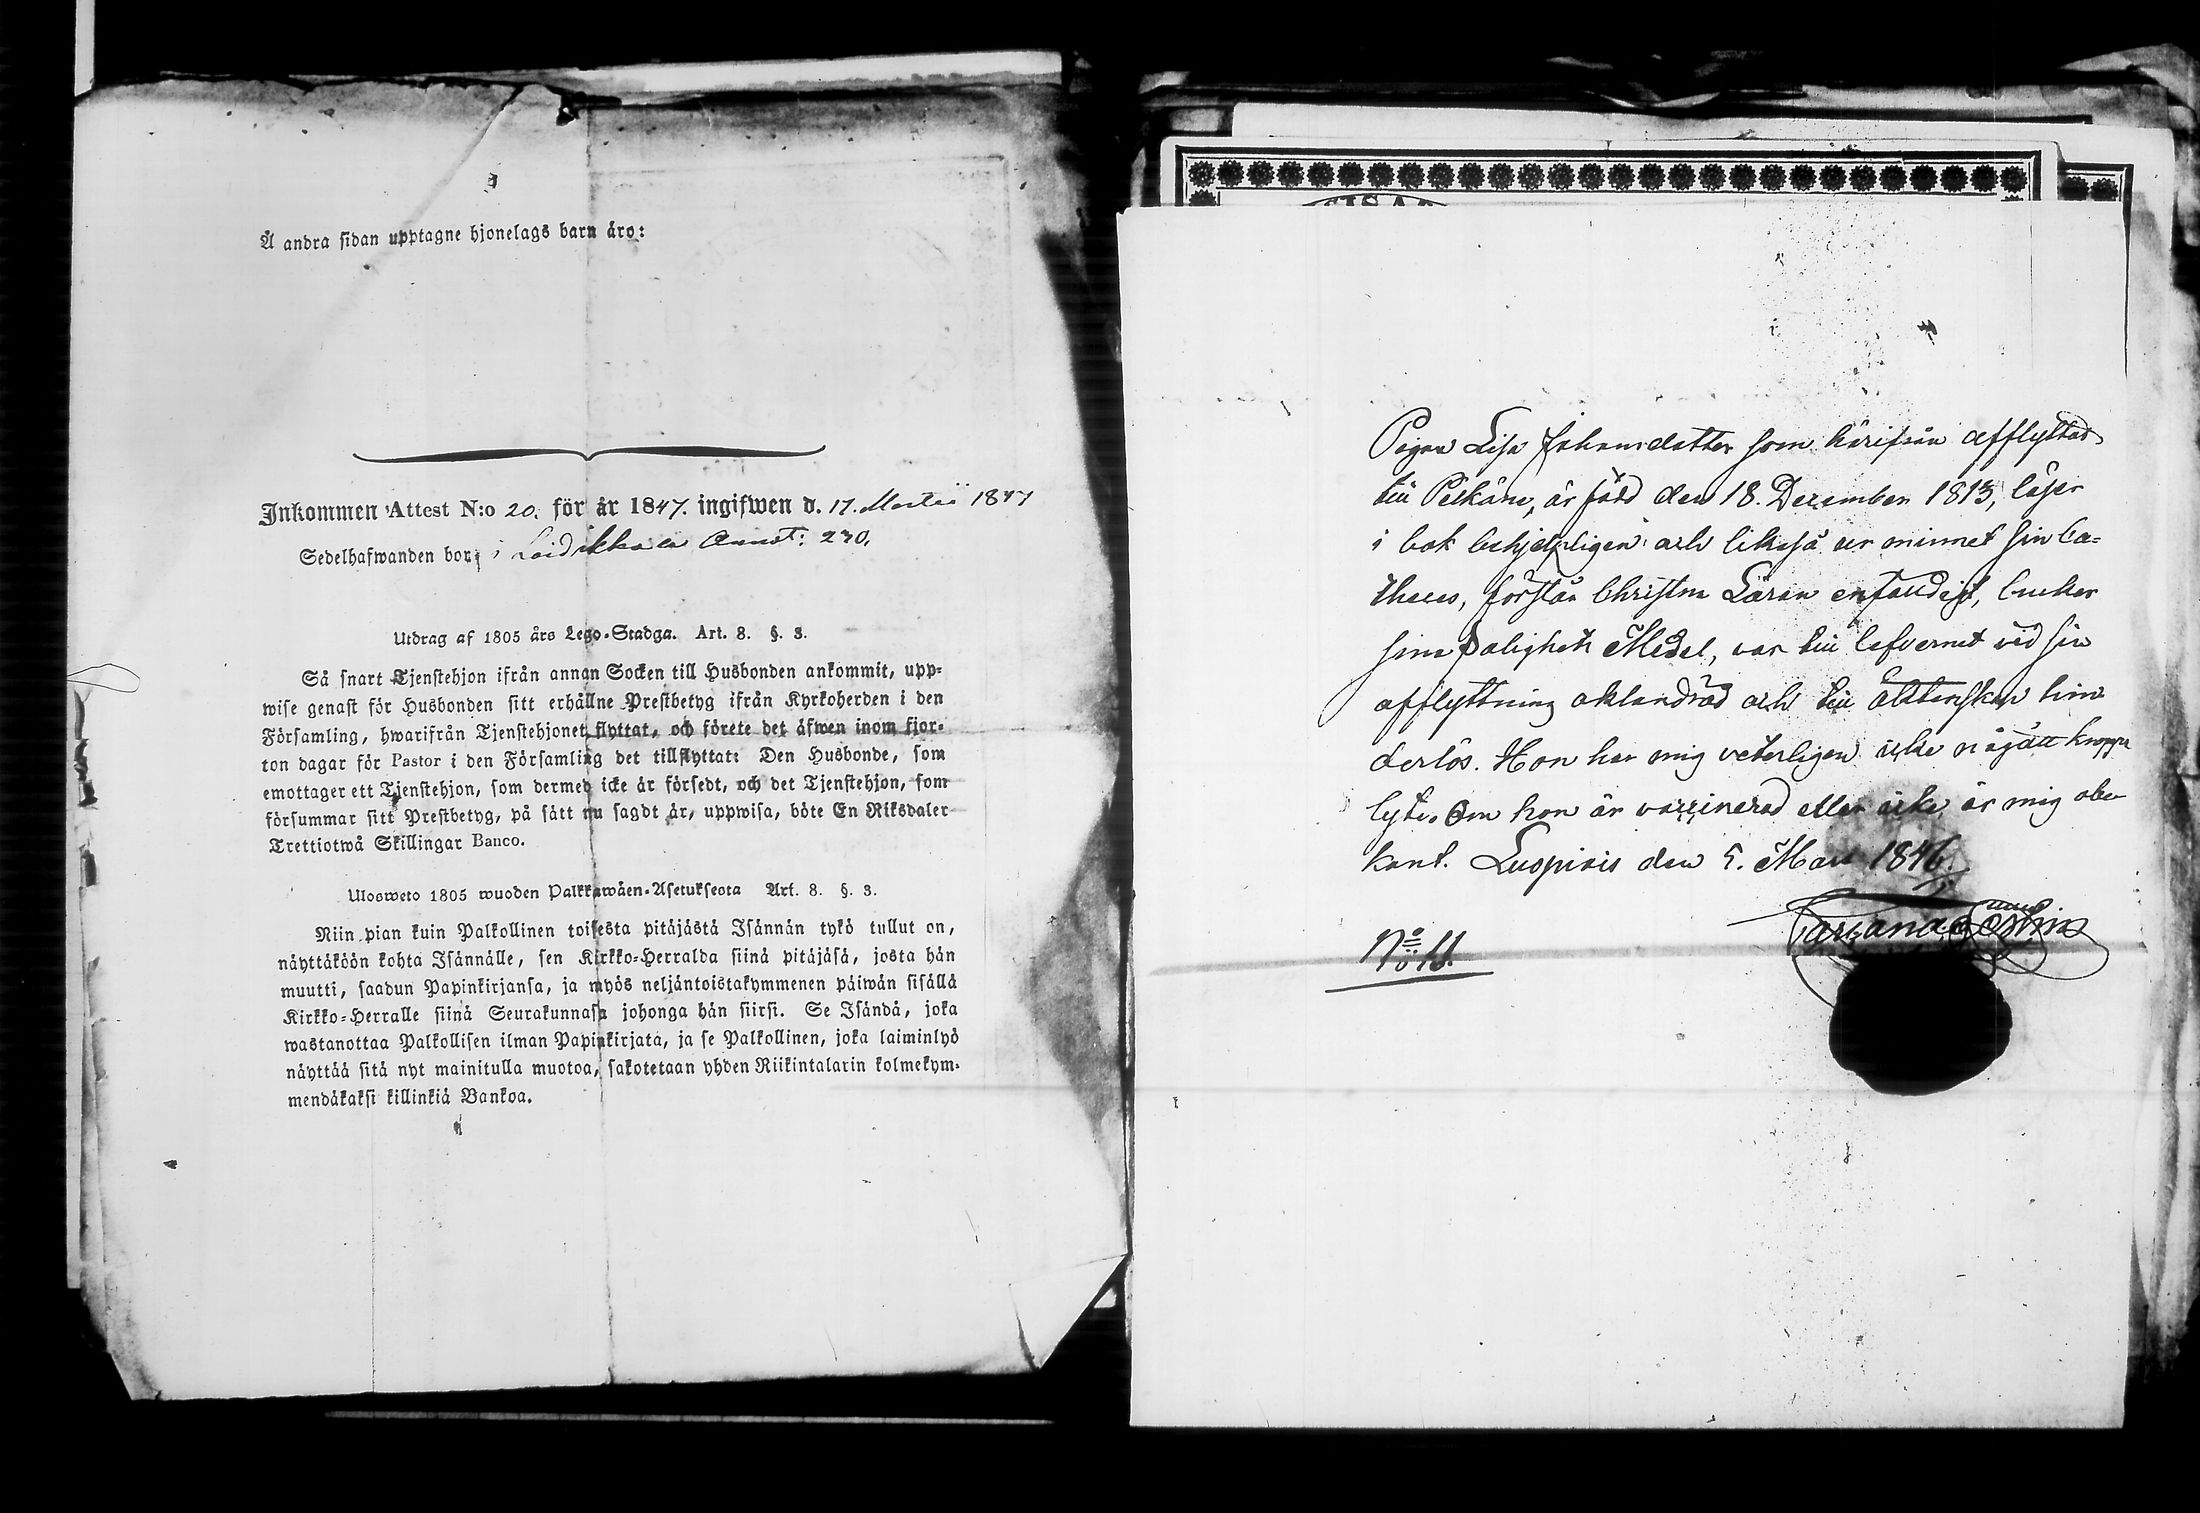 Å andra sidan upptagne hjonelags barn äro:
Inkommen Attest N:o 20. för år 1847. ingifwen d. 17. Martii 1847
Sedelhafwanden bor i Laidikkala Annot: 230.
Utdrag af 1805 års Lego-Stadga. Art. 8. §. 3.
Så snart Tjenstehjon ifrån annan Socken till Husbonden ankommit, upp-
wise genast för Husbonden sitt erhållne Prestbetyg ifrån Kyrkoherden i den
Församling, hwarifrån Tjenstehjonet flyttat, och förete det äfwen inom fjor-
ton dagar för Pastor i den Församling det tillflyttat: Den Husbonde, som
emottager ett Tjenstehjon, som dermed icke är försedt, och det Tjenstehjon, som
försummar sitt Prestbetyg, på sätt nu sagdt är, uppwisa, böte En Riksdaler
Trettiotwå Skillingar Banco.
Ulosweto 1805 wuoden Palkkawäen-Asetuksesta Art. 8. §. 3.
Niin pian kuin Palkollinen toisesta pitäjästä Isännän tykö tullut on,
näyttäköön kohta Isännälle, sen Kirkko-Herralda siinä pitäjäsä, josta hän
muutti, saadun Papinkirjansa, ja myös neljäntoistakymmenen päiwän sisällä
Kirkko-Herralle siinä Seurakunnasa johonga hän siirsi. Se Isändä, joka
wastanottaa Palkollisen ilman Papinkirjata, ja se Palkollinen, joka laiminlyö
näyttää sitä nyt mainitulla muotoa, sakotetaan yhden Riikintalarin kolmekym-
mendäkaksi killinkiä Bankoa.
Pigan Lisa Johansdotter som härifrån afflyttad
till Pelkäne, är född den 18. December 1813, läser
i bok behjelpligen och likaså ur minnet sin Ca-
theces, förstår Christna Läran enfaldigt, brukar
sina Salighets Medel, var till lefvernet vid sin
afflyttning oklandrad och till äktenskap hin
derlös. Hon har mig veterligen icke någått kropps
lyte. Om hon är vaccinerad eller icke är mig obe
kant. Luopiois den 5. Mart 1846.
N:o 11.